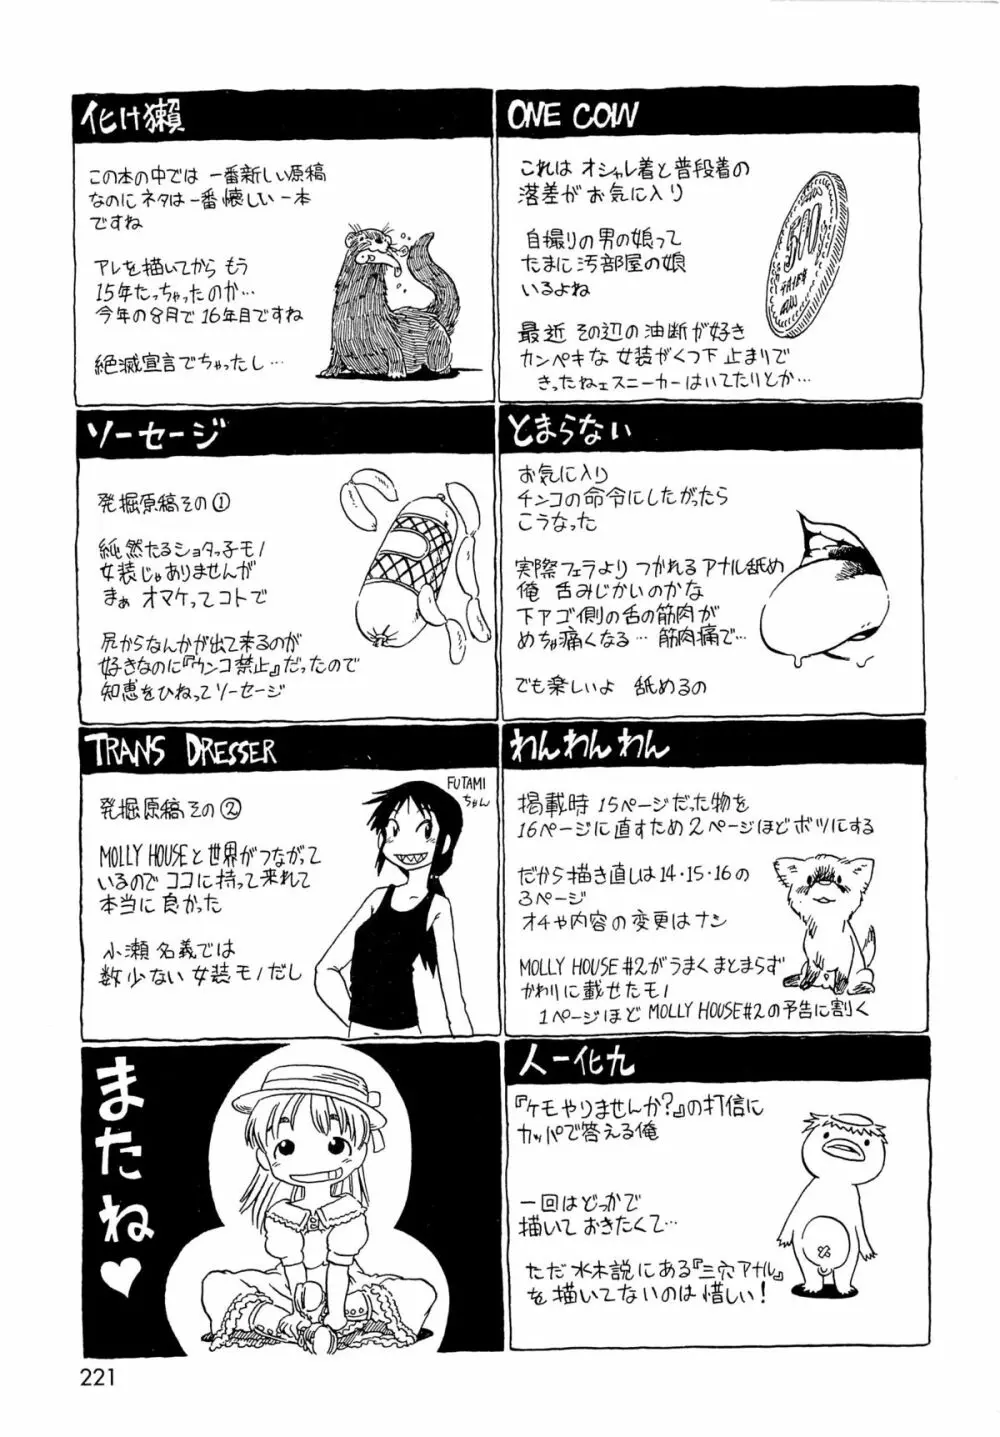 化け獺
この本の中では 一番新しい原稿
なのに ネタは 一番 懐しい 一本
ですね
アレを描いてから もう
15年たっちゃったのか…
今年の8月で16年目ですね
絶滅宣言でちゃったし…
ONE COIN
これは オシャレ着と普段着の
落差が お気に入り
自撮りの男の娘って
たまに汚部屋の娘
いるよね
最近 その辺の油断が好き
カンペキな 女装がくつ下止まりで
きったねェスニーカーはいてたりとか…
500
ソーセージ
とまらない
お気に入り
チンコの命令にしたがったら
こうなった
実際フェラより つかれるアナル舐め
俺 舌みじかいのかな
下アゴ側の舌の筋肉が
めちゃ痛くなる… 筋肉痛で…
でも楽しいよ 舐めるの
TRANS DRESSER
FUTAMI
ちゃん
発掘原稿その②
MOLLY HOUSEと世界がつながって
いるので ココに持って来れて
本当に良かった
小瀬名義では
数少ない 女装モノだし
わんわんわん
掲載時 15ページだった物を
16ページに直すため2ページほどボツにする
だから描き直しは14・15・16の
3ページ
オチや内容の変更はナシ
MOLLY HOUSE#2がうまくまとまらず
かわりに載せたモノ
1ページほど MOLLY HOUSE#2の予告に割く
またね♥
人一化九
『ケモやりませんか?』の打信に
カッパで答える俺
一回はどっかで
描いておきたくて…
ただ 水木説にある『三穴アナル』
を描いてないのは惜しい!
221